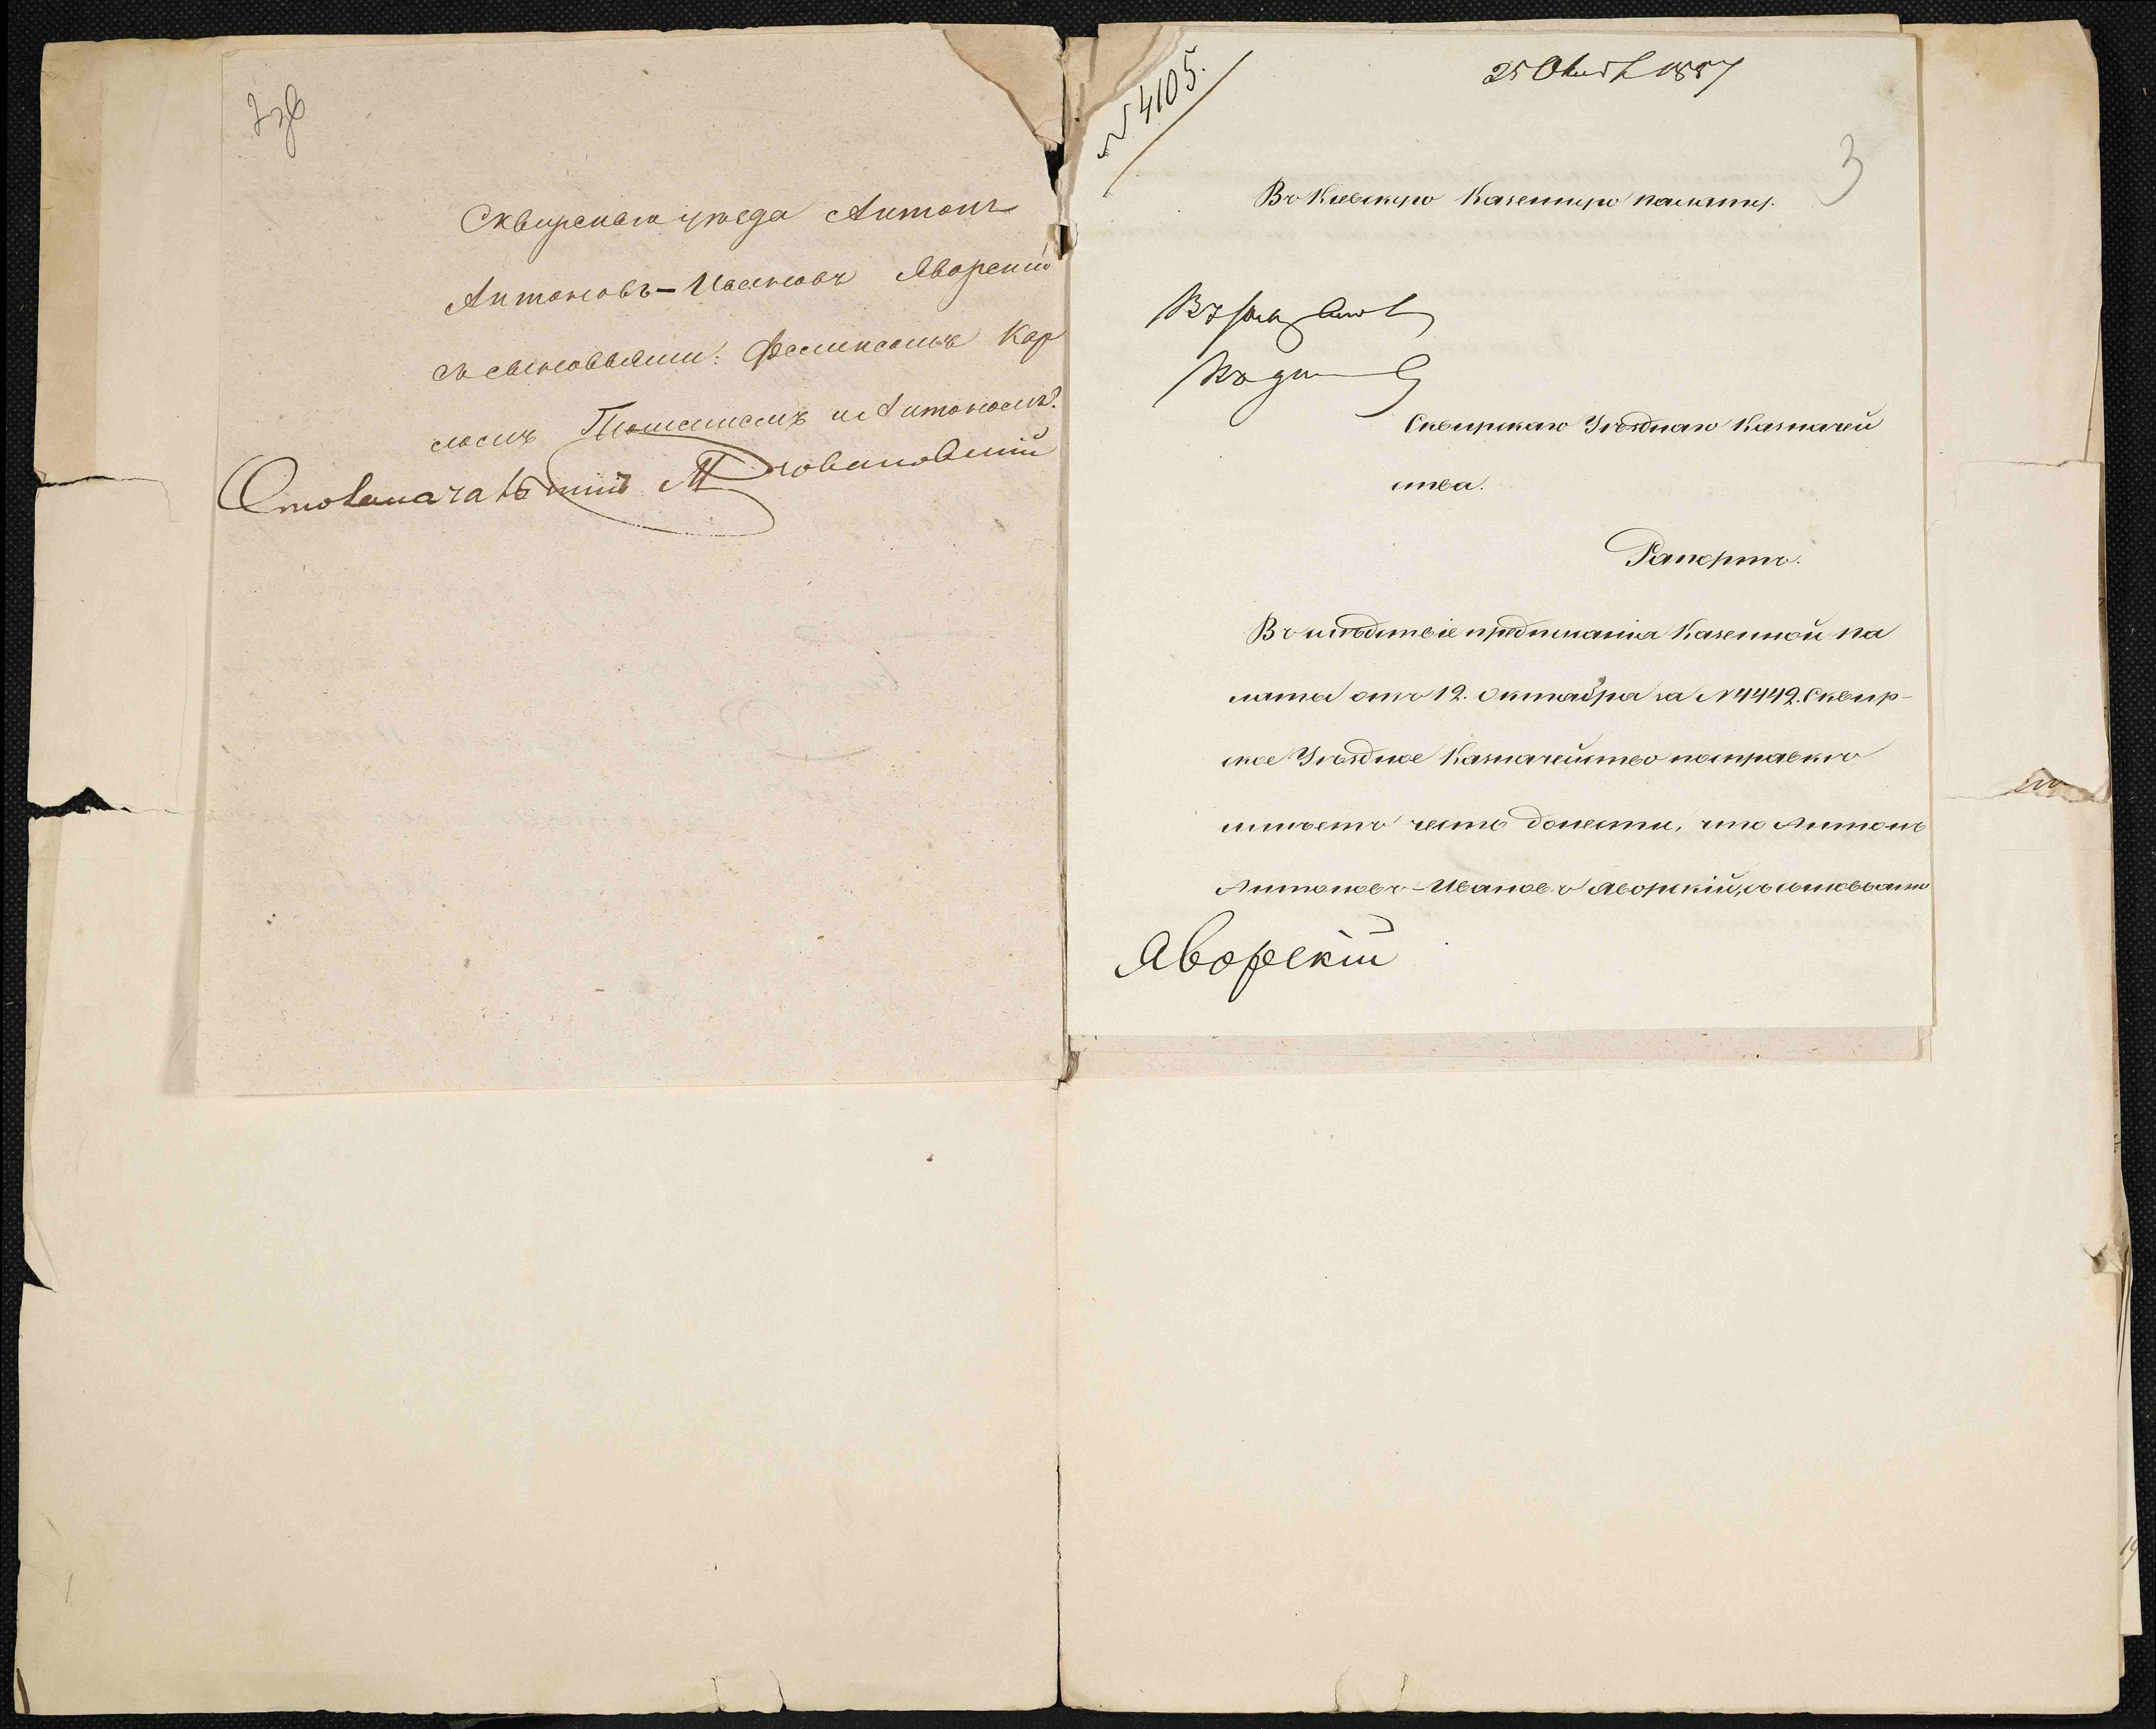 Сквирскаго уѣзда Антонъ
Антоновъ-Ивановъ Яворскій
съ сыновьями: Феликсомъ Кар
ломъ и Антономъ.
Столоначальникъ
№ 4105.
25 1857
3
Въ Кіевскую Казенную палату.
Сквирскаго Уѣзднаго Казначей
ства.
Рапортъ.
Въ слѣдствіе предписанія Казенной па
латы отъ 12. Октября за № 4442. Сквир-
ское Уѣздное Казначейство по справкѣ
имѣетъ честь донести, что Антонъ
Антоновъ-Ивановъ Яворскій, съ сыновьями
Яворскій